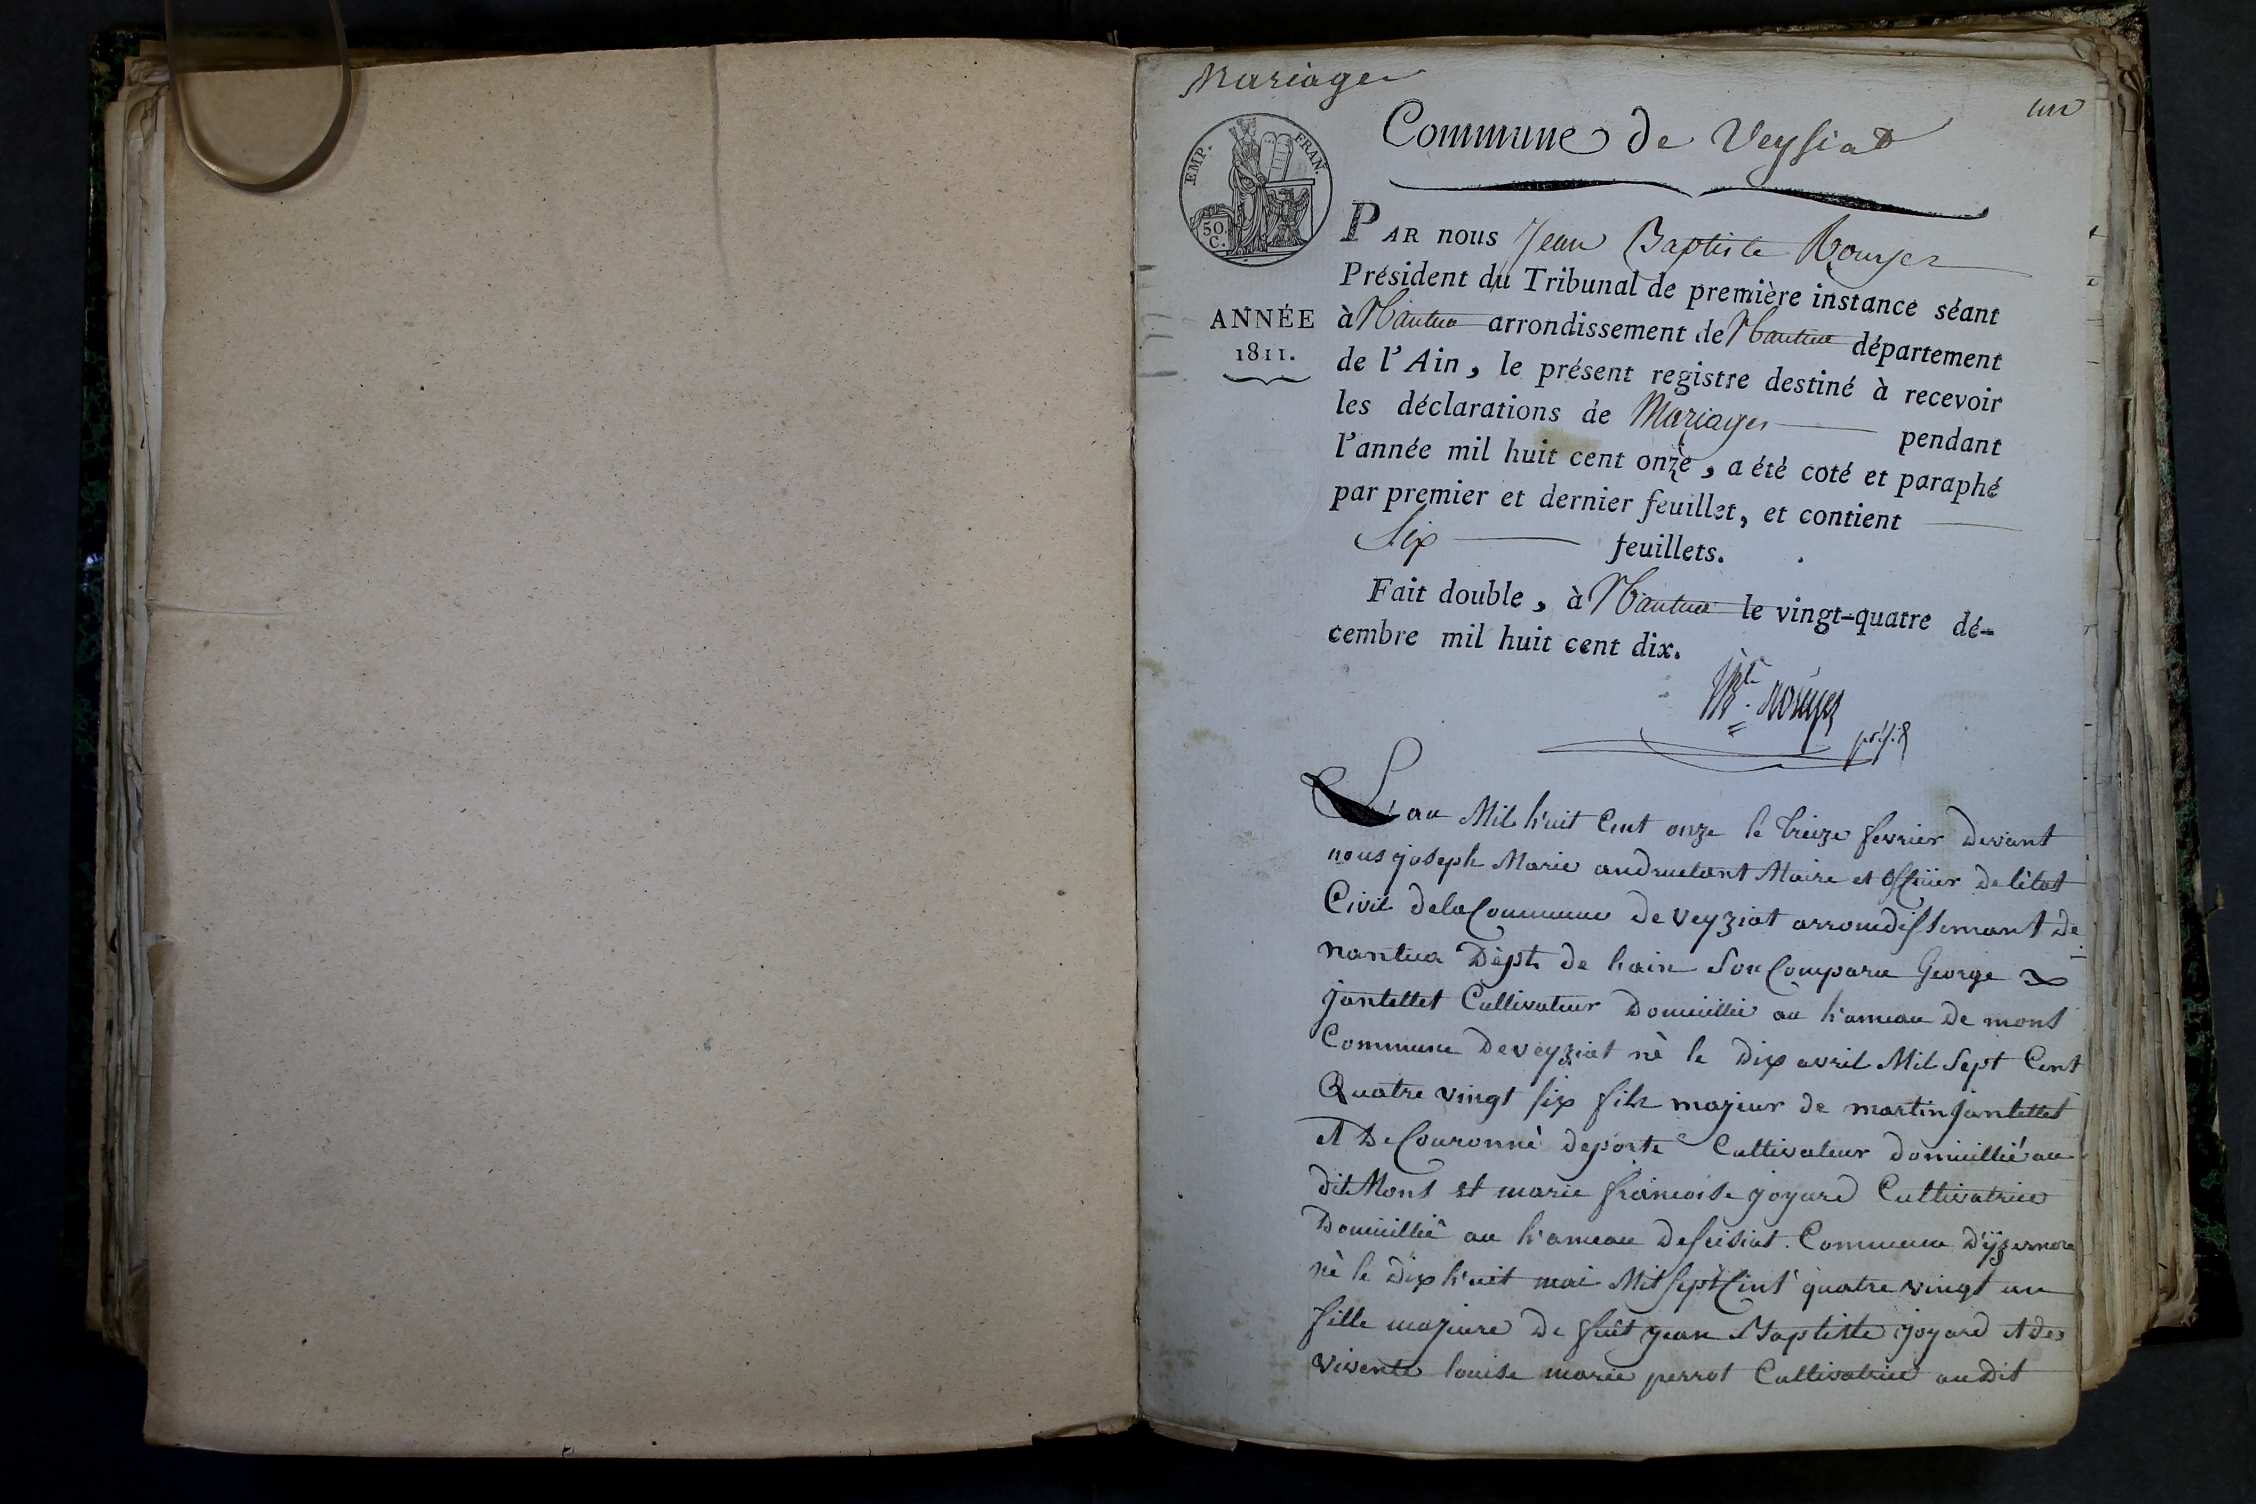 Mariages
un
Commune de Veysiat
EMP. FRAN.
50.
C.
PAR nous Jean Baptiste Rouyer
Président du Tribunal de première instance séant
ANNÉE
1811.
à Nantua arrondissement de Nantua département
de l'Ain, le présent registre destiné à recevoir
les déclarations de Mariages pendant
l'année mil huit cent onze, a été coté et paraphé
par premier et dernier feuillet, et contient
Six feuillets.
Fait double, à Nantua le vingt-quatre dé-
cembre mil huit cent dix.
Rouyer
présid
L'an Mil huit Cent onze le treize fevrier devant
nous joseph Marie andruetant Maire et officier de létat
Civil dela Commune de veyziat arroudissemant de
nantua Dépt. de lain son Comparu George
jantettet Cultivateur Domicillié au hameau de mons
Commune de veyziat nè le Dix avril Mil Sept Cent
Quatre vingt six fils majeur de martin jantettet
et De Couronné deporte Cultivateur domicillié au
dit Mons et marie francoise joyard Cultivatrice
Domicillié au hameau de Commune d'yzernore
nè le Dix huit mai Mil sept Cent quatre vingt un
fille majeure de feüt jean Baptiste joyard et de
vivente louise marie perrot Cultivatrice au dit